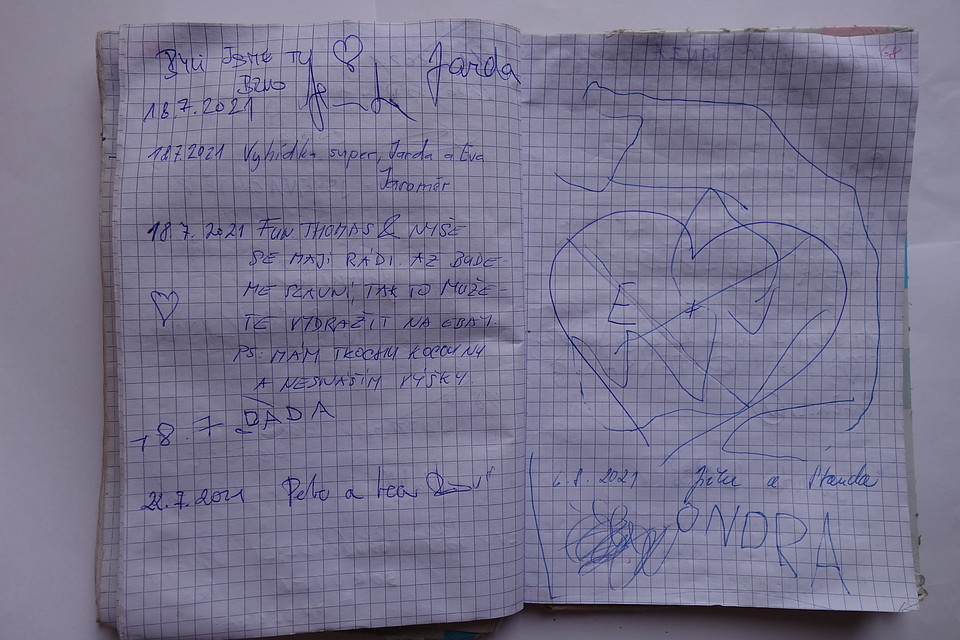 Byli jsme tu Jarda
Brno
18.7.2021
18.7.2021 Vyhlídka super, Jarda a Eva
Jaroměř
18.7.2021 FUN THOMAS & NYŠE
SE MAJÍ RÁDI. AŽ BUDE-
ME SLAVNÍ, TAK TO MŮŽE-
TE VYDRAŽIT NA EBAY.
PS: MÁM TROCHU KOCOVINU
A NESNÁŠÍM VÝŠKY.
18.7 DÁDA
22.7.2021 a
E + J
6.8.2021 a Standa
ONDRA